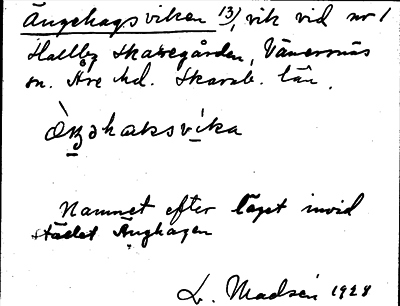 Ängehagsviken 13), vik vid nr 1
Hallby Skattegården, Vänersnäs
sn. Åse hd. Skarab. län.
æ̀ŋəhaksvika
Namnet efter läget invid
stället Änghagen
L. Madsén 1928